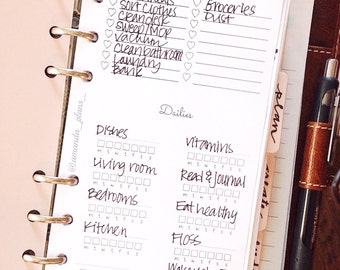 Groceries
Sort clothes
Dust
Clean desk
Sweep/Mop
Vacuum
Clean bathroom
Laundry
Bank
Dailies
Dishes
Vitamins
M T W T F S S
M T W T F S S
Living room
Read & Journal
M T W T F S S
M T W T F S S
Bedrooms
Eat healthy
M T W T F S S
M T W T F S S
Kitchen
Floss
M T W T F S S
M T W T F S S
plan